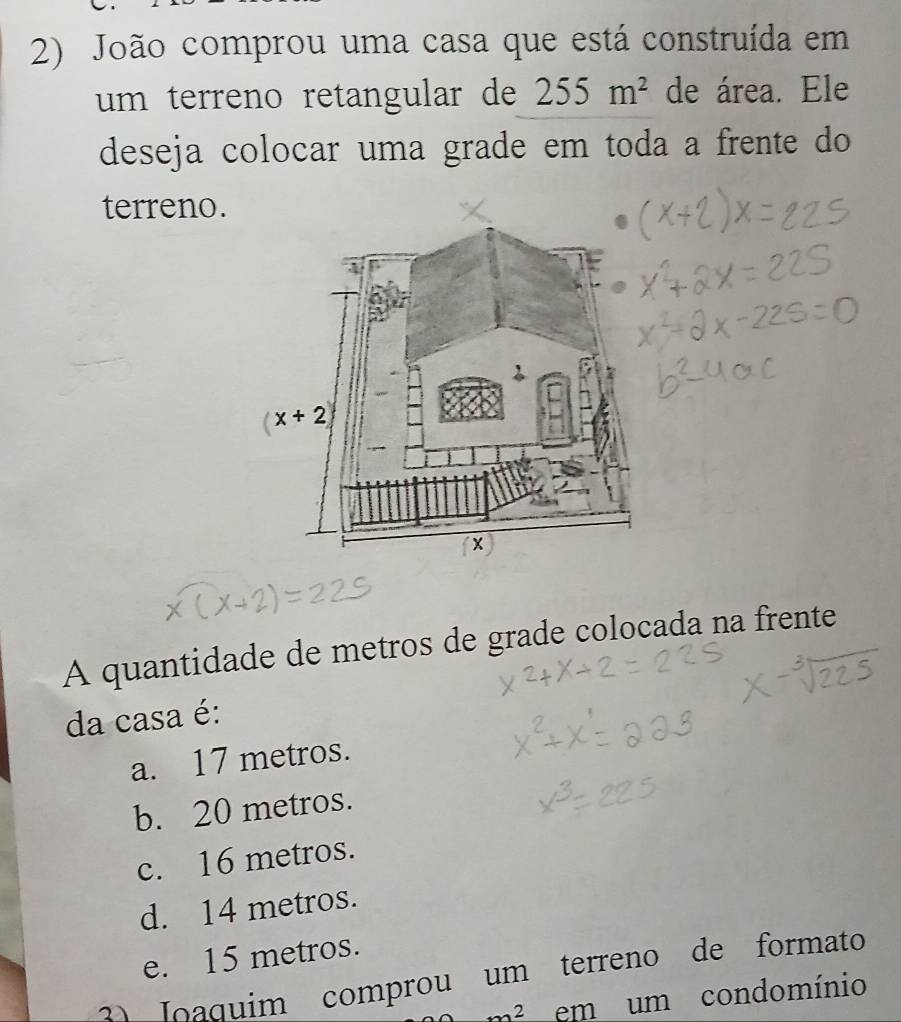 2) João comprou uma casa que está construída em
um terreno retangular de 255 m² de área. Ele
deseja colocar uma grade em toda a frente do
terreno.
x
• (x+2)x=225
• x²+2x=225
x²+2x-225=0
b²-4ac
(x + 2)
(x)
x(x+2)=225
A quantidade de metros de grade colocada na frente
da casa é:
x²+x+2=225
x-³√225
x²+x¹=223
x³=225
a. 17 metros.
b. 20 metros.
c. 16 metros.
d. 14 metros.
e. 15 metros.
3) Joaquim comprou um terreno de formato
m² em um condomínio